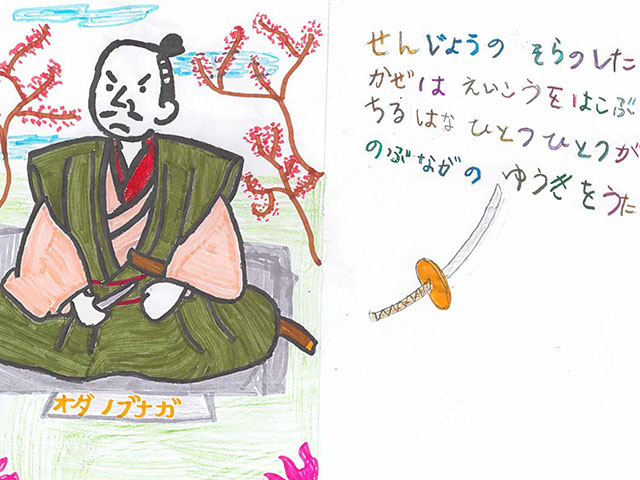 オダ ノブナガ
せんじょうの そらのした
かぜは えいこうをはこぶ
ちるはな ひとつひとつが
のぶながの ゆうきをうた